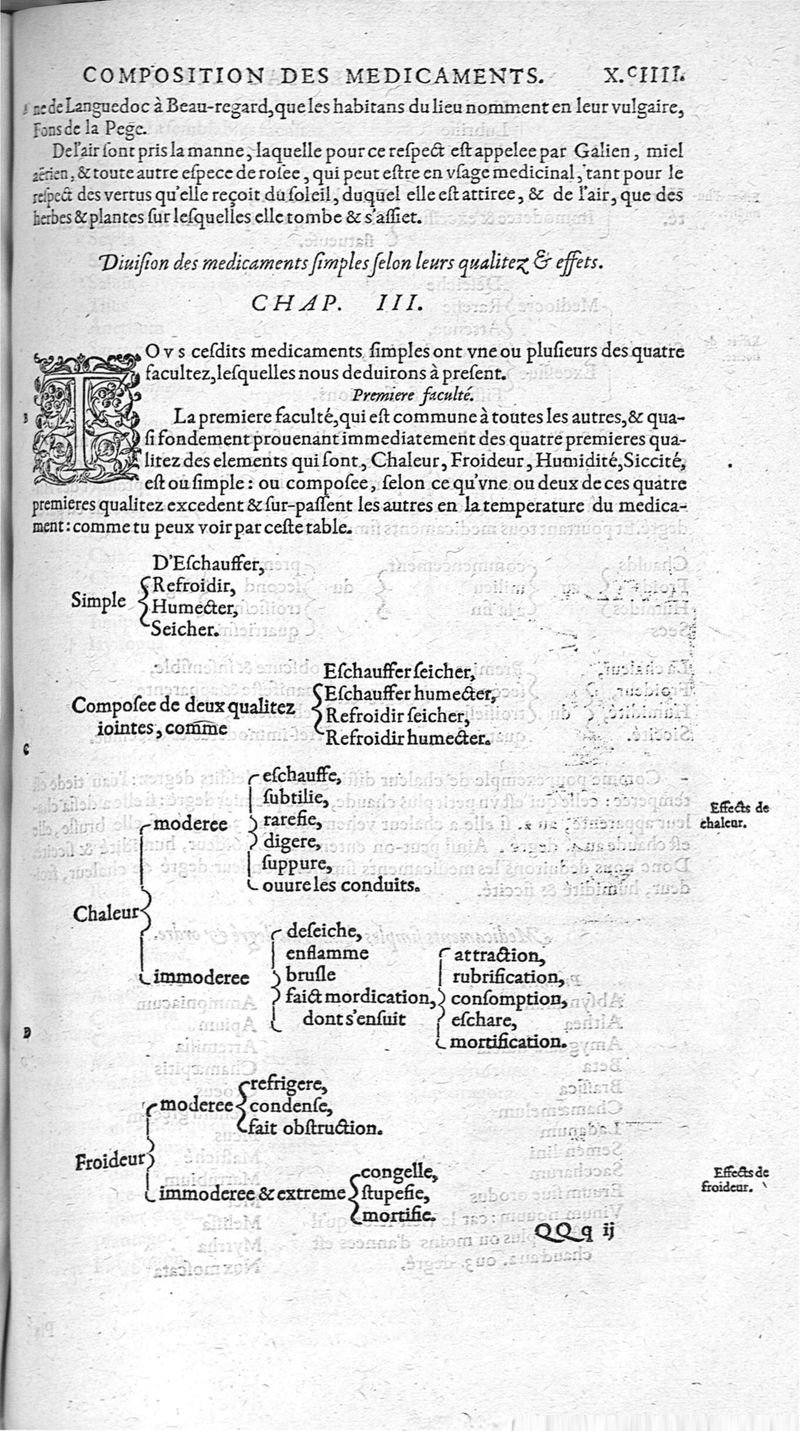 COMPOSITION DES MEDICAMENTS. X.CIIII.
ne de Languedoc à Beau-regard, que les habitans du lieu nomment en leur vulgaire,
Fons de la Pege.
De l'air ſont pris la manne, laquelle pour ce reſpect eſt appelee par Galien, miel
aërien, & toute autre eſpece de roſee, qui peut eſtre en vſage medicinal, tant pour le
reſpect des vertus qu'elle reçoit du ſoleil, duquel elle eſt attiree, & de l'air, que des
herbes & plantes ſur leſquelles elle tombe & s'aſſiet.
Diuiſion des medicaments ſimples ſelon leurs qualitez & effets.
CHAP. III.
TOVS ceſdits medicaments ſimples ont vne ou pluſieurs des quatre
facultez, leſquelles nous deduirons à preſent.
Premiere faculté.
La premiere faculté, qui eſt commune à toutes les autres, & qua-
ſi fondement prouenant immediatement des quatre premieres qua-
litez des elements qui ſont, Chaleur, Froideur, Humidité, Siccité,
eſt ou ſimple: ou compoſee, ſelon ce qu'vne ou deux de ces quatre
premieres qualitez excedent & ſur-paſſent les autres en la temperature du medica-
ment: comme tu peux voir par ceſte table.
Simple
D'Eſchauffer,
Refroidir,
Humecter,
Seicher.
Compoſee de deux qualitez
iointes, comme
Eſchauffer ſeicher,
Eſchauffer humecter,
Refroidir ſeicher,
Refroidir humecter.
C
Effects de
chaleur.
Chaleur
moderee
eſchauffe,
ſubtilie,
rarefie,
digere,
ſuppure,
ouure les conduits.
immoderee
deſeiche,
enflamme
bruſle
faict mordication,
dont s'enſuit
attraction,
rubrification,
conſomption,
eſchare,
mortification.
D
Froideur
moderee
refrigere,
condenſe,
fait obſtruction.
immoderee & extreme
congelle,
ſtupefie,
mortifie.
Effects de
froideur.
QQq ij